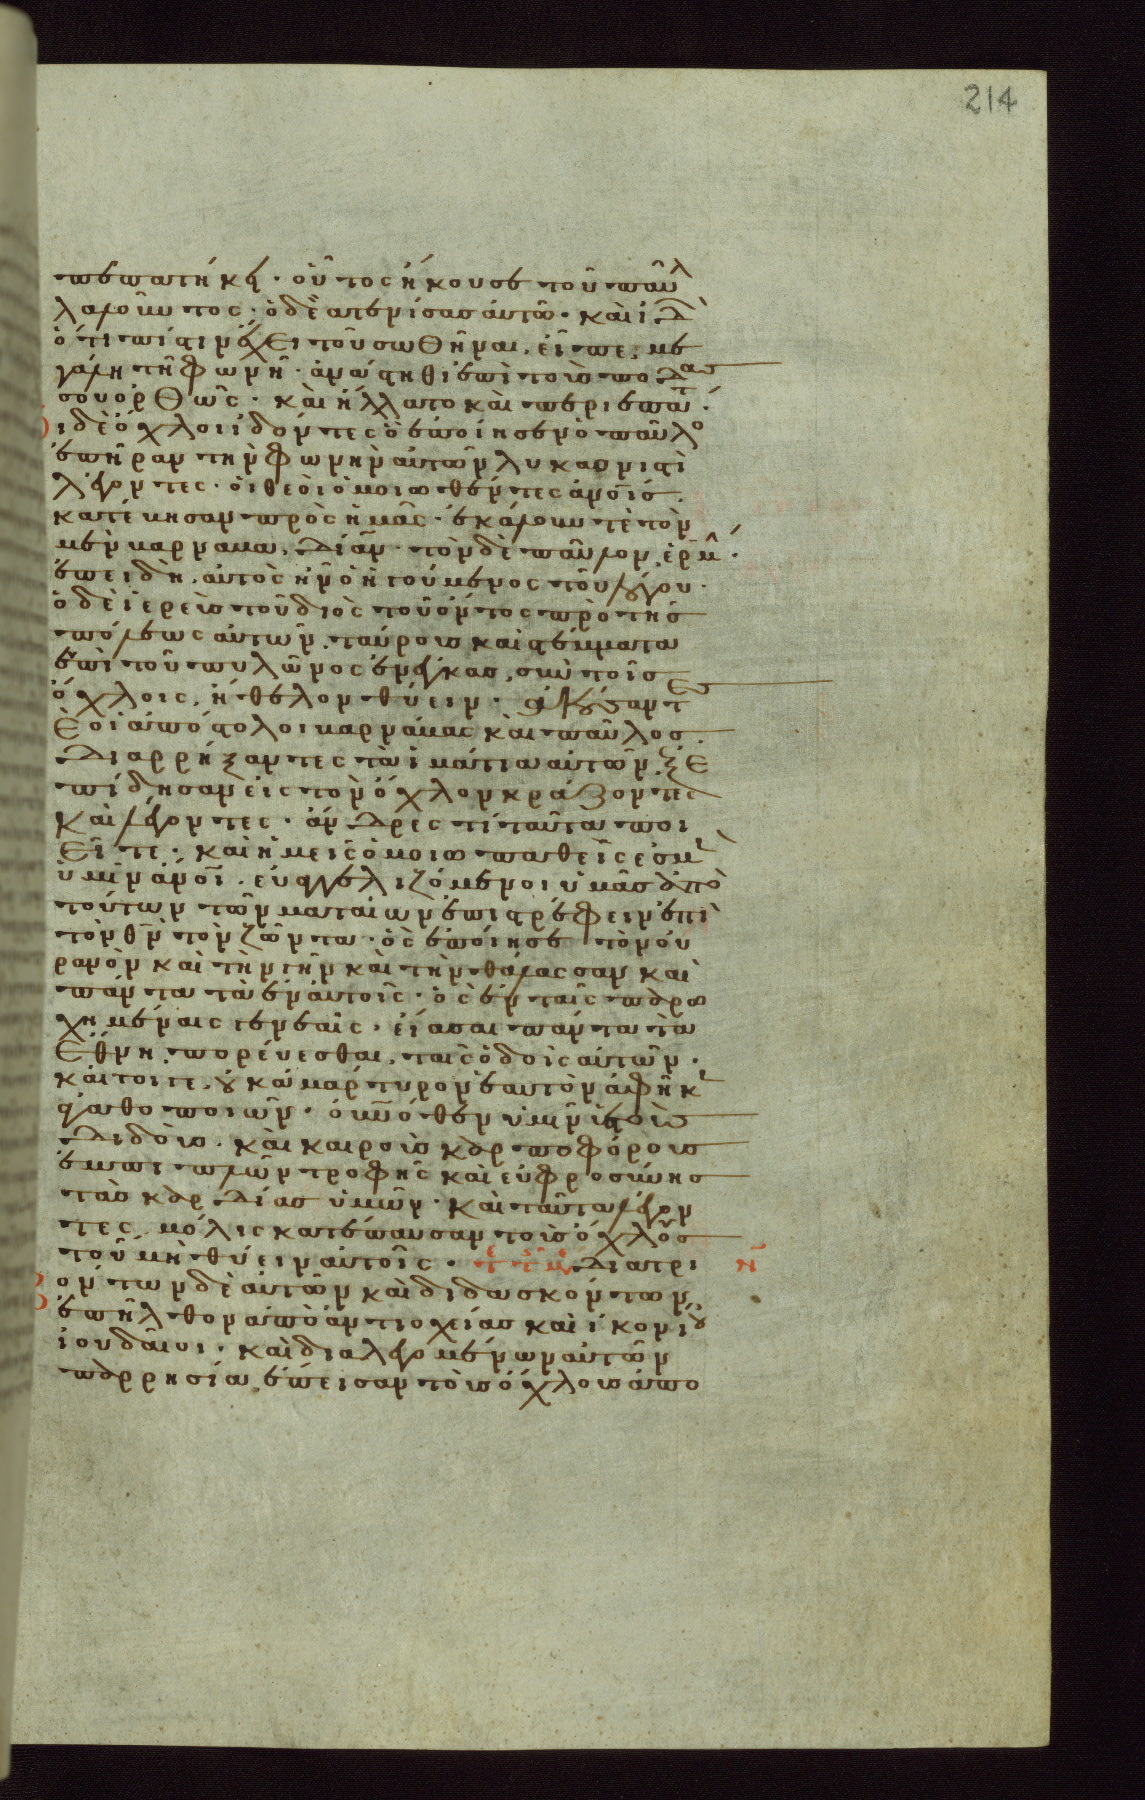 214
πεπατήκει· οὗτος ἤκουσε τοῦ παύλ
λαλοῦντος· ὁ δὲ ἀτενίσας αὐτῶ· καὶ ἰδ
ὅτι πίστιν ἔχει τοῦ σωθῆναι, εἶπε, με
γάλη τῆ φωνῆ· ἀνάστηθι ἐπὶ τοὺς πόδας
σου ὀρθῶς· καὶ ἥλλατο καὶ περιεπάτ·
οἱ δὲ ὄχλοι ἰδόντες ὃ ἐποίησεν ὁ παῦλο
ἐπῆραν τὴν φωνὴν αὐτῶν λυκαονιστὶ
λέγοντες· οἱ θεοὶ ὁμοιωθέντες ἀνοις
κατέβησαν πρὸς ἡμᾶς· ἐκάλουν τὲ τὸν
μὲν βαρνάβαν, δίαν· τὸν δὲ παῦλον, ἑρμ·
ἐπειδὴ αὐτὸς ἦν ὁ ἡγούμενος τοῦ λόγου·
ὁ δὲ ἱερεὺς τοῦ διὸς τοῦ ὄντος πρὸ τῆς
πόλεως αὐτῶν, ταύρους καὶ στέμματα
ἐπὶ τοὺς πυλῶνας ἐνέγκας, σὺν τοῖς
ὄχλοις, ἤθελον θύειν· ἀκούσαντ
ες οἱ ἀπόστολοι βαρνάβας καὶ παῦλος
διαρρήξαντες τὰ ἱμάτια αὐτῶν, ἐξε
πήδησαν εἰς τὸν ὄχλον κράζοντες
καὶ λέγοντες· ἄνδρες τί ταῦτα ποι
εῖτε· καὶ ἡμεῖς ὁμοιοπαθεῖς ἐσμ
ὑμῖν ἄνοι· εὐαγγελιζόμενοι ὑμᾶς ἀπὸ
τούτων τῶν ματαίων ἐπιστρέφειν ἐπὶ
τὸν θν τὸν ζῶντα· ὃς ἐποίησε τὸν οὐ
ρανὸν καὶ τὴν γῆν καὶ τὴν θάλασσαν καὶ
πάντα τὰ ἐν αὐτοῖς· ὃς ἐν ταῖς παρω
χημέναις γενεαῖς· εἴασαι πάντα τὰ
ἔθνη πορεύεσθαι ταῖς ὁδοῖς αὐτῶν·
καίτοιγε οὐκ ἀμάρτυρον ἑαυτὸν ἀφῆκ
ἀγαθοποιῶν· οὐνόθεν ὑμῖν ὑετοὺς
διδοὺς· καὶ καιροὺς καρποφόρους
ἐμπιπλῶν τροφῆς καὶ εὐφροσύνης
τὰς καρδίας ὑμῶν· καὶ ταῦτα λέγον
τες, μόλις κατέπαυσαν τοὺς ὄχλους
τοῦ μὴ θύειν αὐτοῖς· διατρι
βόντων δὲ αὐτῶν καὶ διδασκόντων,
ἐπῆλθον ἀπὸ ἀντιοχείας καὶ ἰκονίου
ἰουδαῖοι· καὶ διαλεγομένων αὐτῶν
παρρησία, ἔπεισαν τοὺς ὄχλους ἀπο